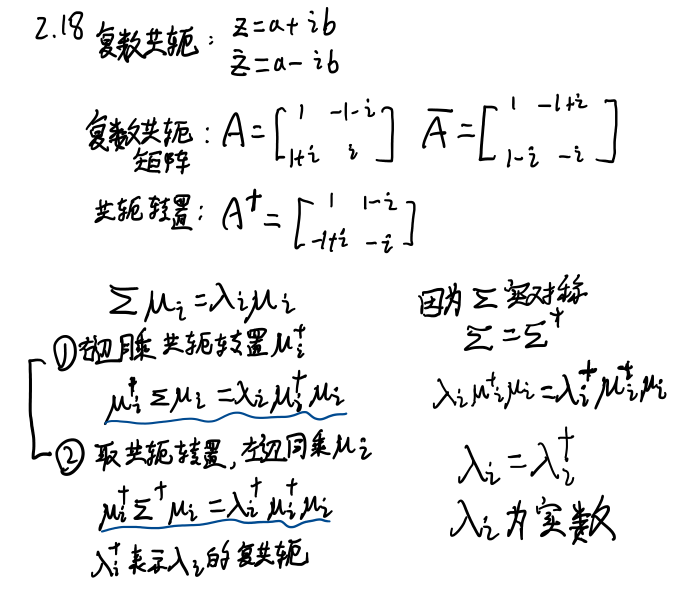 2.18 复数共轭: z=a+ib
z̄=a-ib
复数共轭矩阵: A=[1 -1-i; 1+i i] Ā=[1 -1+i; 1-i -i]
共轭转置: A⁺=[1 1-i; -1+i -i]
Σμᵢ=λᵢμᵢ
①右边同乘共轭转置μᵢ⁺
μᵢ⁺Σμᵢ=λᵢμᵢ⁺μᵢ
②取共轭转置,右边同乘μᵢ
μᵢ⁺Σ⁺μᵢ=λᵢ⁺μᵢ⁺μᵢ
λᵢ⁺表示λᵢ的复共轭
因为Σ实对称
Σ=Σ⁺
λᵢμᵢ⁺μᵢ=λᵢ⁺μᵢ⁺μᵢ
λᵢ=λᵢ⁺
λᵢ为实数